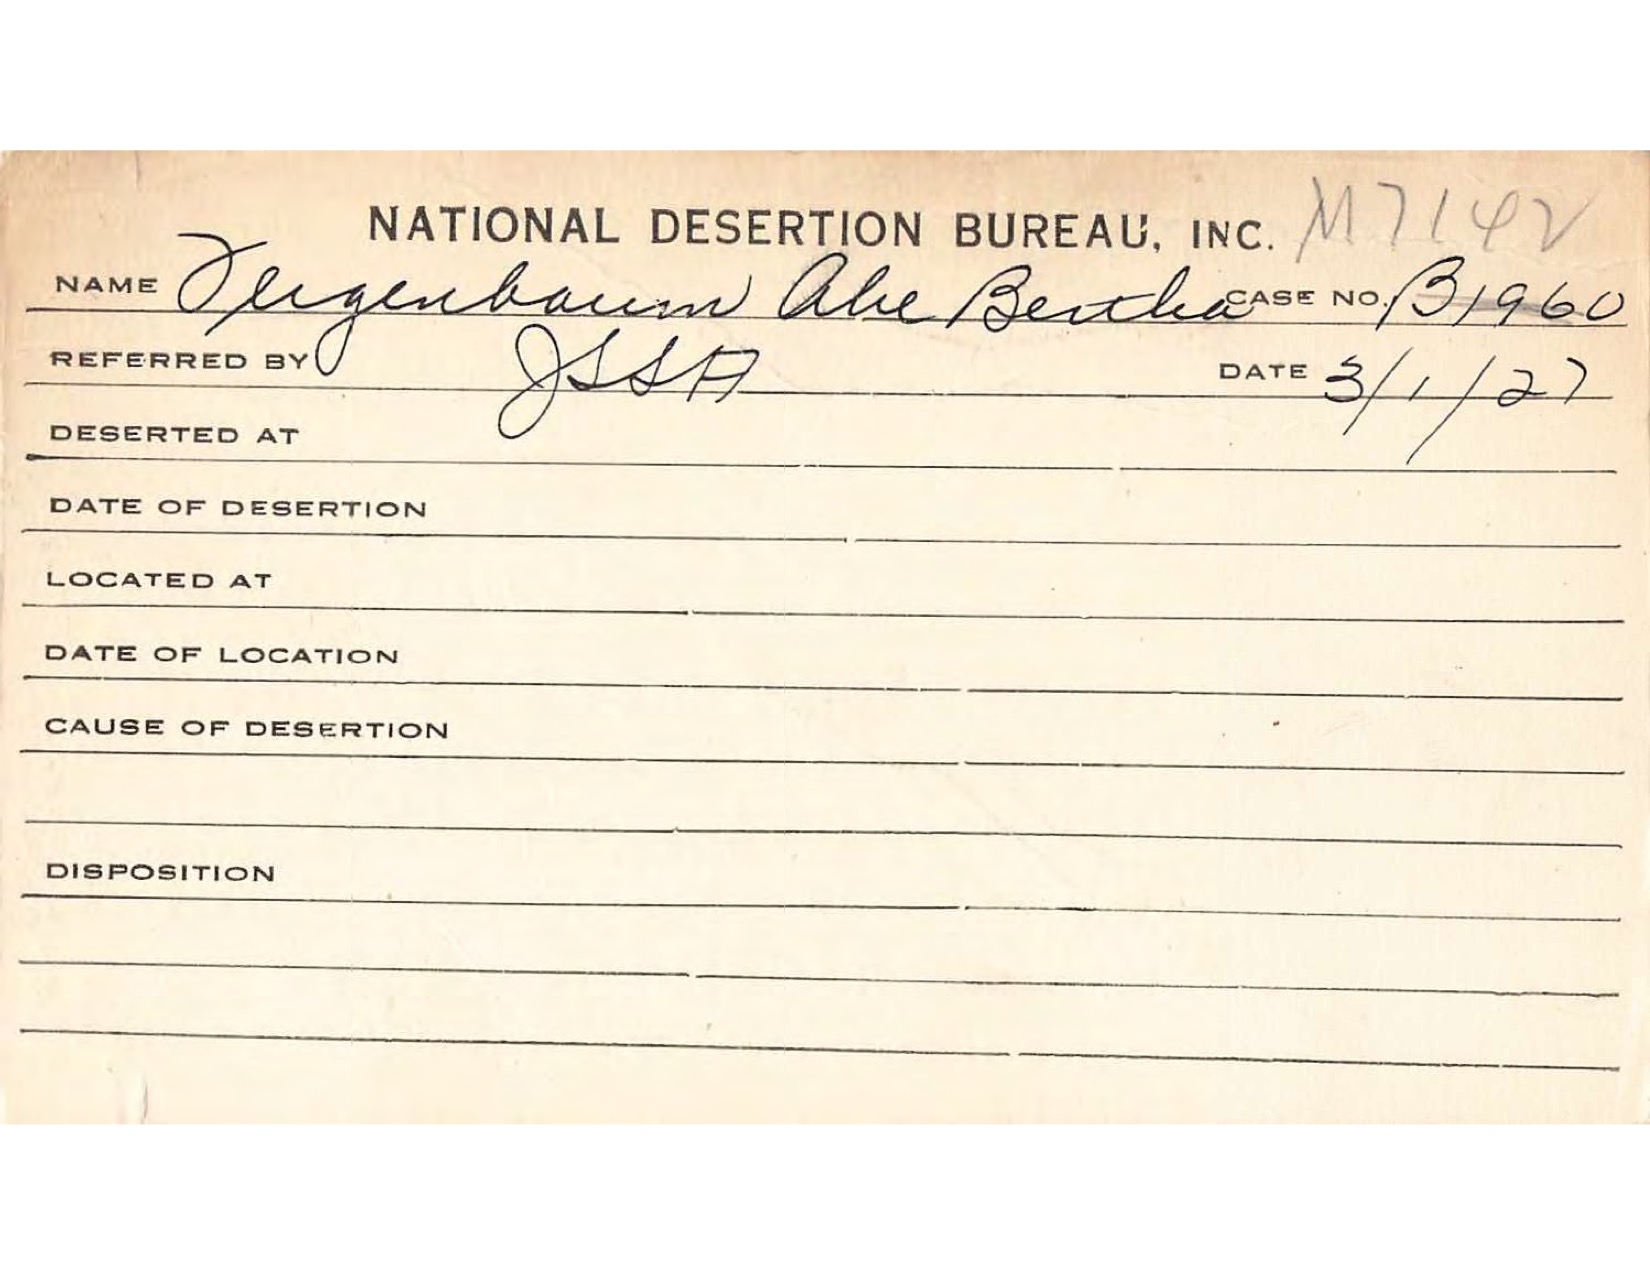 NATIONAL DESERTION BUREAU, INC. M7142
NAME Feigenbaum Abe Bertha CASE NO. B1960
REFERRED BY JSSA DATE 3/1/27
DESERTED AT
DATE OF DESERTION
LOCATED AT
DATE OF LOCATION
CAUSE OF DESERTION
DISPOSITION